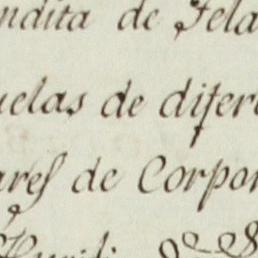 ndita de Tela
uelas de difere
ares de Corpor